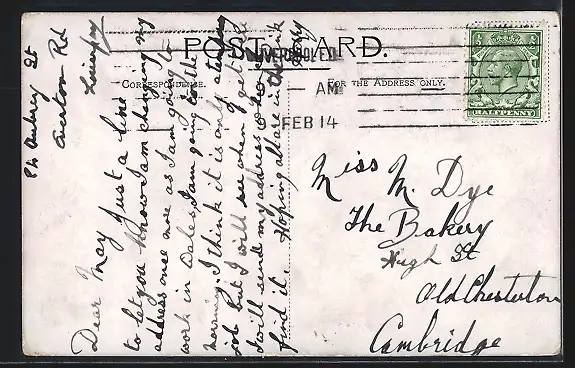 POST CARD.
CORRESPONDENCE.
FOR THE ADDRESS ONLY.
LIVERPOOL
AM
FEB 14
HALFPENNY
Aubrey St
Everton Rd
Liverpool
Dear May Just a line
to let you know I am changing my
address once more as I am going to
work in Dales, I am going on the
morning. I think it is only a
job but I will see when I get
I will send my address
find it. Hoping all are in the
Miss M. Dye
The Bakery
High St
Old Chesterton
Cambridge